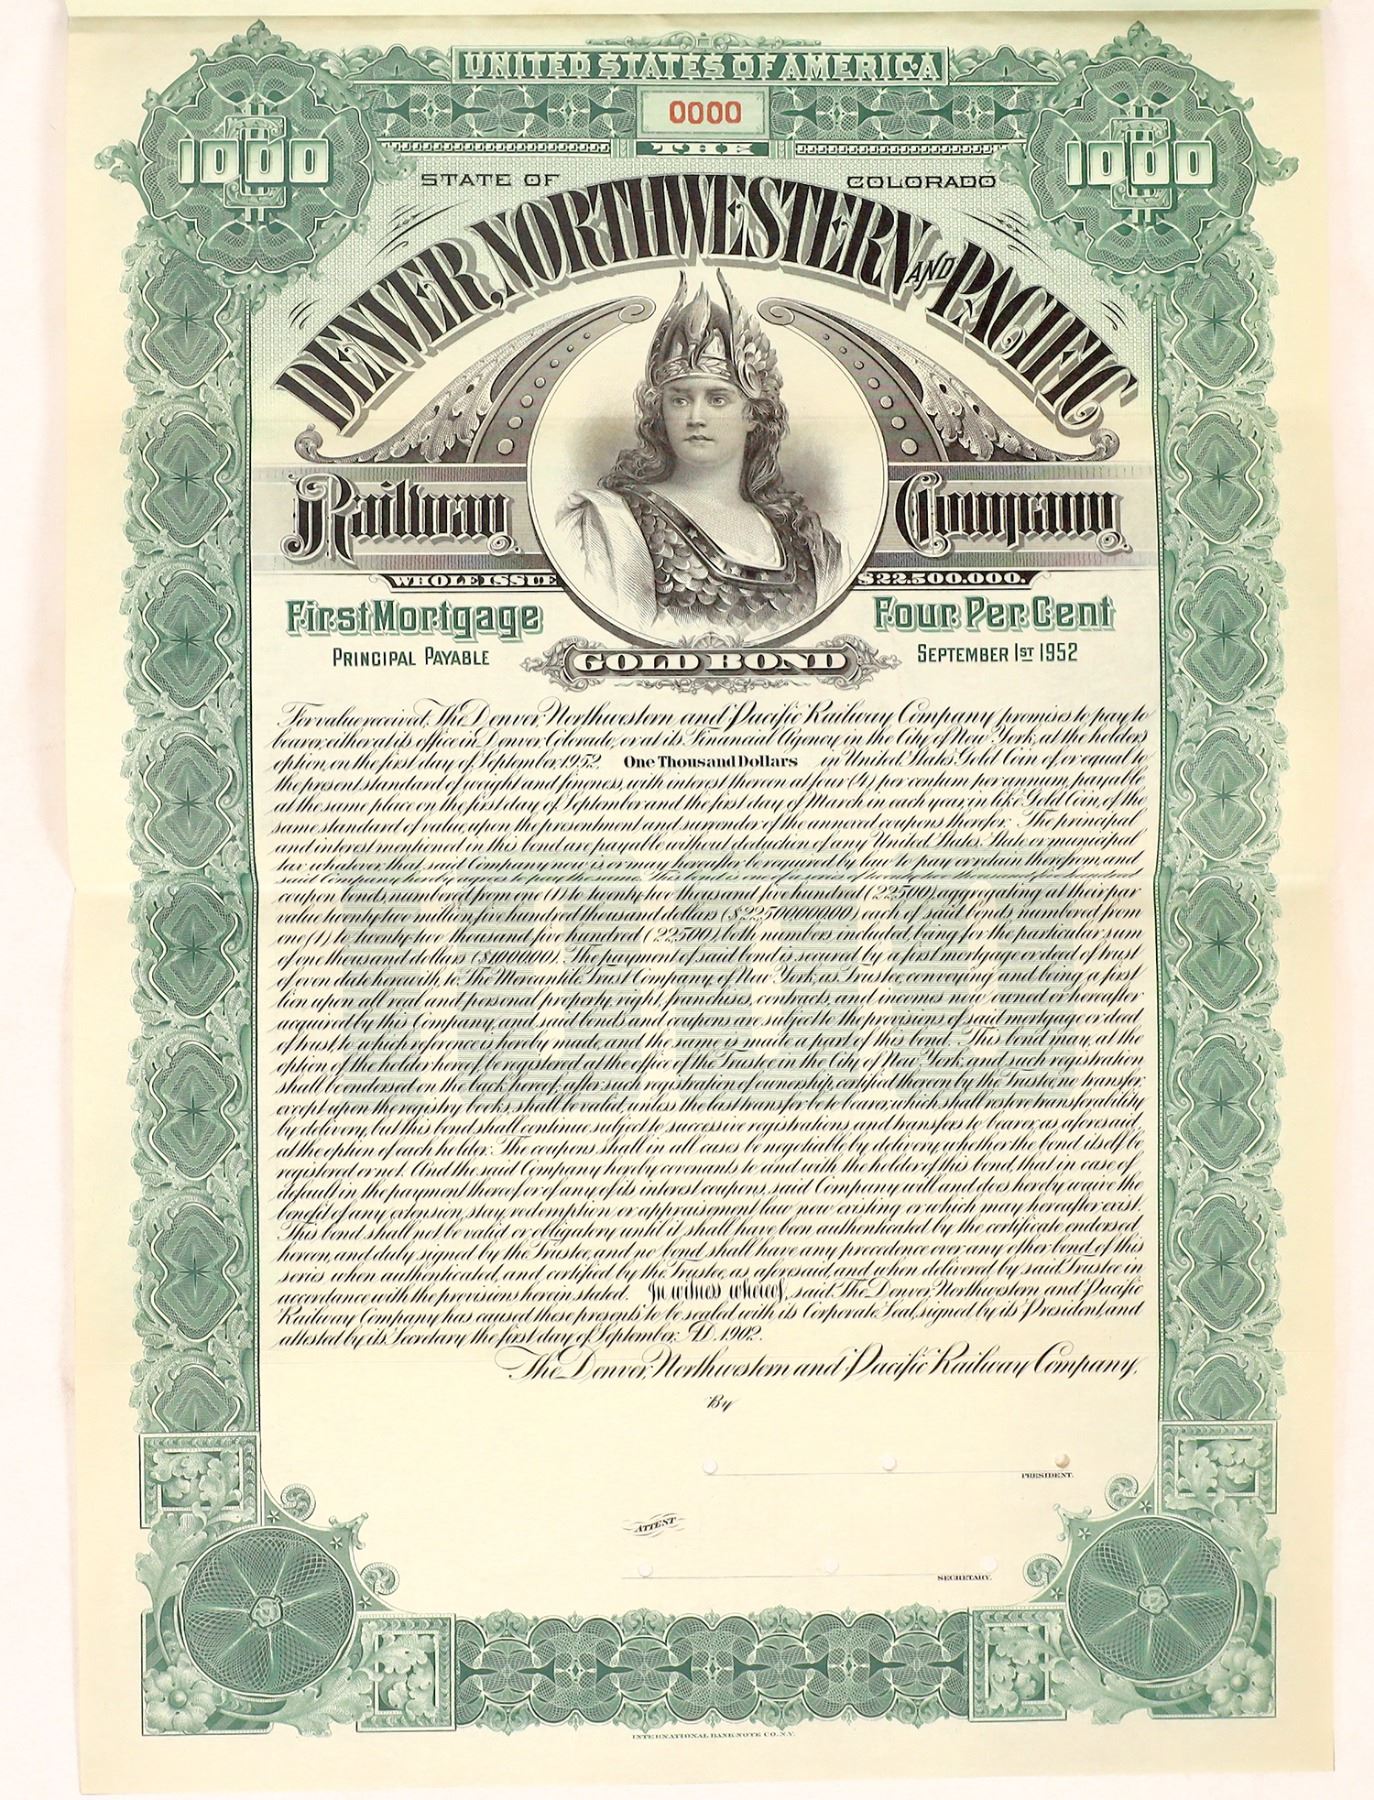 UNITED STATES OF AMERICA
0000
1000
1000
THE
STATE OF COLORADO
DENVER, NORTHWESTERN AND PACIFIC
Railway Company
WHOLE ISSUE $22.500.000.
First Mortgage Four Per Cent
PRINCIPAL PAYABLE GOLD BOND SEPTEMBER 1ST 1952
For value received, The Denver, Northwestern and Pacific Railway Company promises to pay to
bearer, either at its office in Denver, Colorado, or at its Financial Agency in the City of New York, at the holders
option, on the first day of September, 1952, One Thousand Dollars in United States Gold Coin of or equal to
the present standard of weight and fineness, with interest thereon at four (4) per centum per annum, payable
at the same place on the first day of September and the first day of March in each year, in like Gold Coin, of the
same standard of value, upon the presentment and surrender of the annexed coupons therefor. The principal
and interest mentioned in this bond are payable without deduction of any United States, State or municipal
tax whatever that said Company now is or may hereafter be required by law to pay or retain therefrom, and
said Company hereby agrees to pay the same. This bond is one of a series of twenty two thousand five hundred
coupon bonds, numbered from one (1) to twenty two thousand five hundred (22500), aggregating at their par
value twenty two million, five hundred thousand dollars ($22,500,000.00) each of said bonds, numbered from
one (1) to twenty two thousand five hundred (22500), both numbers included, being for the particular sum
of one thousand dollars ($1000.00). The payment of said bond is secured by a first mortgage or deed of trust
of even date herewith, to The Mercantile Trust Company of New York, as Trustee, conveying and being a first
lien upon all real and personal property, right, franchises, contracts, and incomes now owned or hereafter
acquired by this Company, and said bonds and coupons are subject to the provisions of said mortgage or deed
of trust, to which reference is hereby made, and the same is made a part of this bond. This bond may, at the
option of the holder hereof, be registered at the office of the Trustee in the City of New York, and such registration
shall be endorsed on the back hereof, after such registration of ownership, certified thereon by the Trustee, no transfer,
except upon the registry books, shall be valid, unless the last transfer be to bearer, which shall restore transferability
by delivery, but this bond shall continue subject to successive registrations and transfers to bearer, as aforesaid,
at the option of each holder. The coupons shall in all cases be negotiable by delivery, whether the bond itself be
registered or not. And the said Company hereby covenants to and with the holder of this bond, that in case of
default in the payment thereof, or of any of its interest coupons, said Company will and does hereby waive the
benefit of any extension, stay, redemption or appraisement law now existing or which may hereafter exist.
This bond shall not be valid or obligatory until it shall have been authenticated by the certificate endorsed
hereon, and duly signed by the Trustee, and no bond shall have any precedence over any other bond of this
series when authenticated, and certified by the Trustee, as aforesaid, and when delivered by said Trustee in
accordance with the provisions herein stated. In witness whereof, said The Denver, Northwestern and Pacific
Railway Company has caused these presents to be sealed with its Corporate Seal, signed by its President, and
attested by its Secretary the first day of September, A.D. 1902.
The Denver, Northwestern and Pacific Railway Company,
By
PRESIDENT.
ATTEST
SECRETARY.
INTERNATIONAL BANK NOTE CO. N.Y.